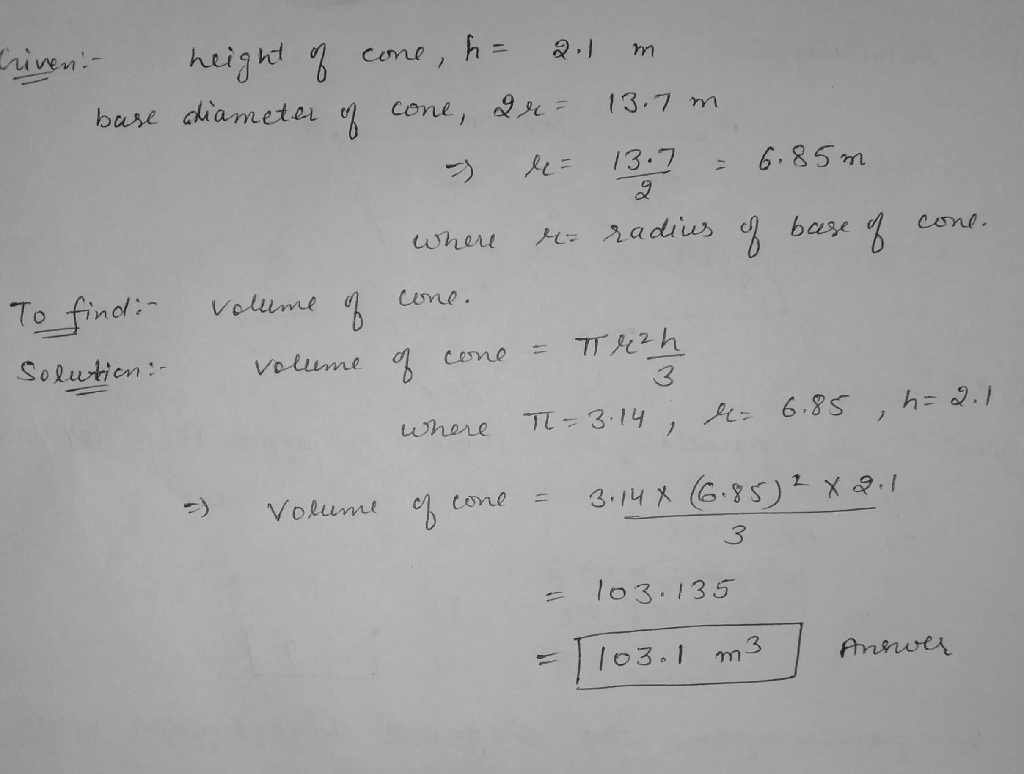 Given:- height of cone, h = 2.1 m
base diameter of cone, 2r = 13.7 m
=> r = 13.7/2 = 6.85 m
where r = radius of base of cone.
To find:- Volume of cone.
Solution:- Volume of cone = πr²h/3
where π = 3.14, r = 6.85, h = 2.1
=> Volume of cone = 3.14 × (6.85)² × 2.1 / 3
= 103.135
= 103.1 m³ Answer